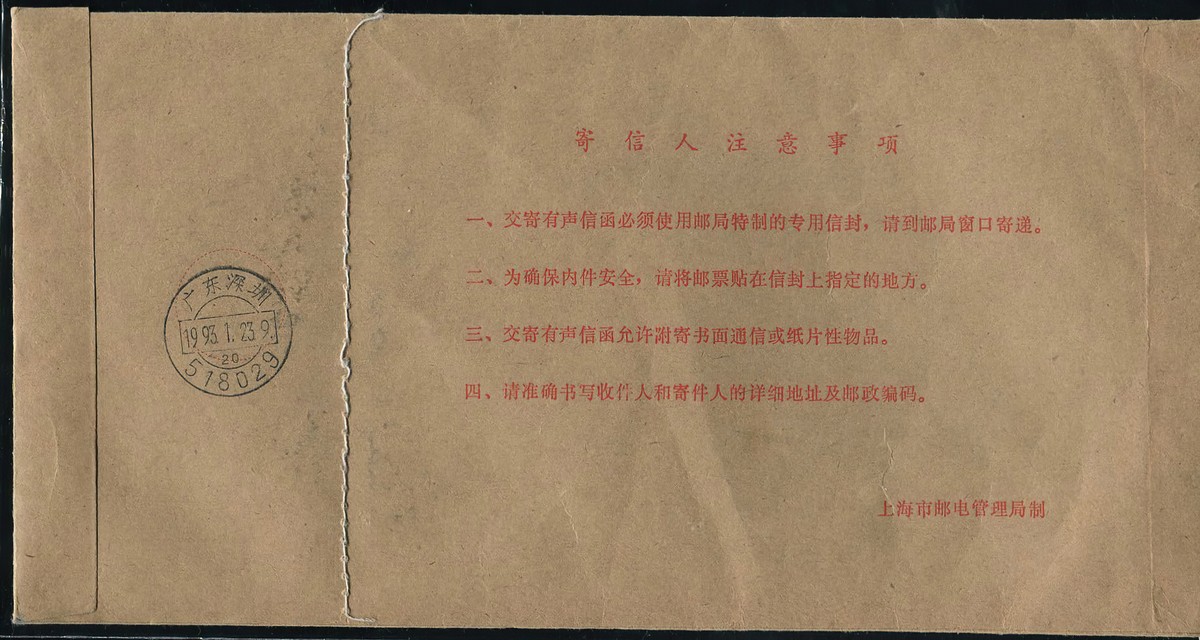 寄信人注意事项
一、交寄有声信函必须使用邮局特制的专用信封，请到邮局窗口寄递。
二、为确保内件安全，请将邮票贴在信封上指定的地方。
三、交寄有声信函允许附寄书面通信或纸片性物品。
四、请准确书写收件人和寄件人的详细地址及邮政编码。
上海市邮电管理局制
广东深圳
1993.1.23.9.
20
518029